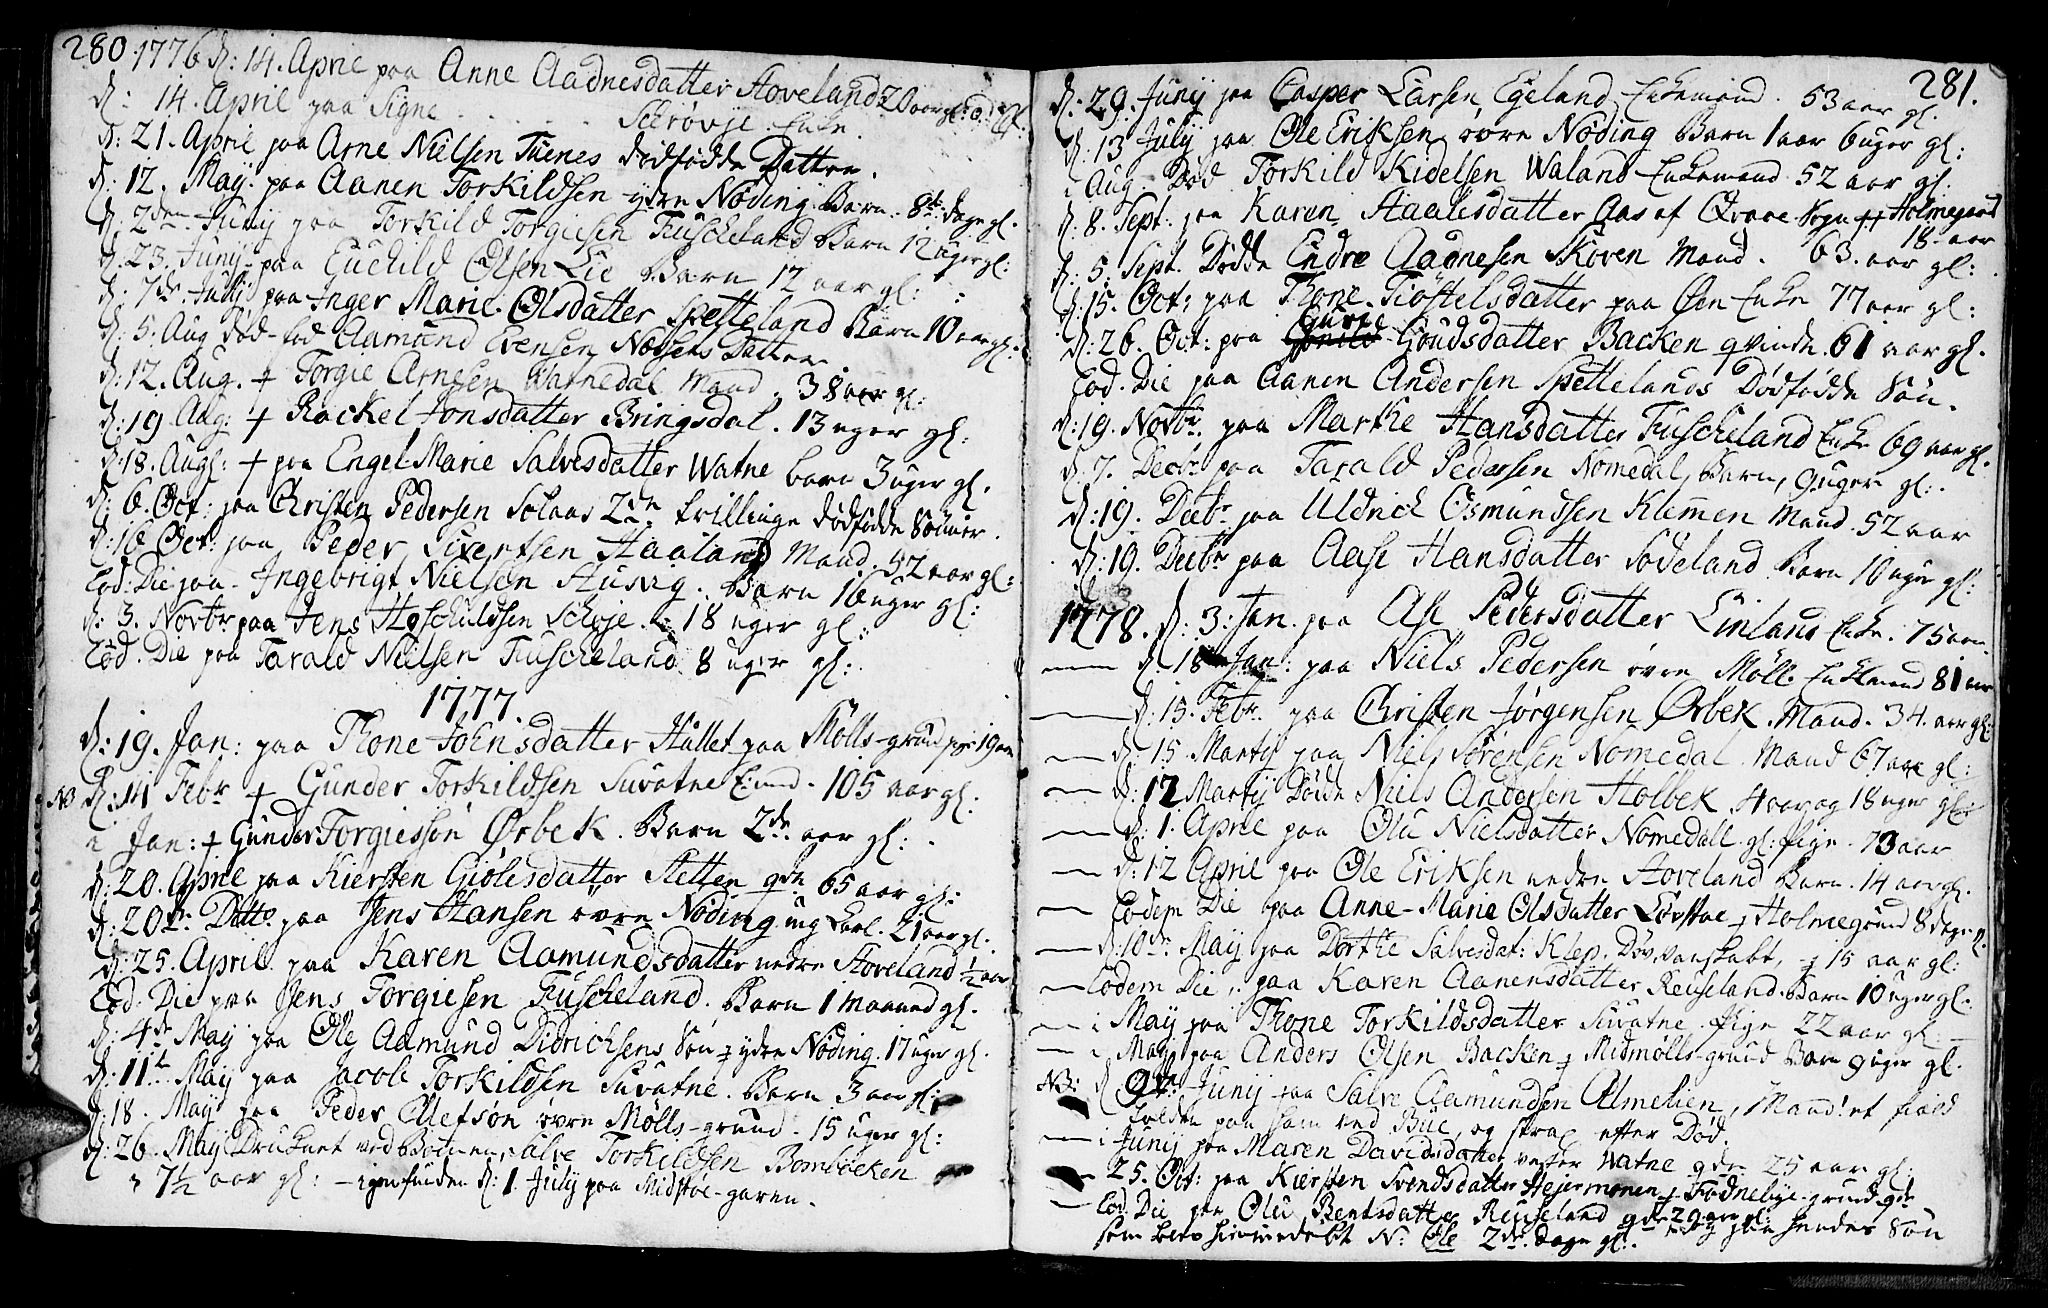 280.
1776 d: 14. April paa Anne Aadnesdatter Hoveland
d: 14. April paa Signe . . . . . . Enke.
d: 21. April paa Arne Nielsen Tuenes dødfødde Datter.
d: 12. May. paa Aanen Torkildsen ydre Nøding. Barn. 8te dage gl.
d: 2den Junij paa Torkild Torgiesen Fuscheland Barn 12 uger gl:
d. 23. Junij paa Euchild Olsen Lie Barn 12 aar gl:
d: 7de July paa Inger Marie Olsdatter Spetteland Barn 10 aar gl:
d: 5. Aug død-fød Aamund Evensen Datter
d: 12. Aug. + Torgie Arnesen Warnedal Mand. 38 aar gl:
d: 19 Aug: + Rackel Jonsdatter Bringsdal. 13 uger gl:
d: 18. Aug: + paa Engel Marie Salvesdatter Watne barn 3 uger gl.
d: 6. Oct: paa Christen Pedersen Solaas 2de tvillinge dødfødde Sønner.
d: 16 Oct: paa Peder Sivertsen Haaland Mand. 52 aar gl:
Eod: Die paa Ingebrigt Nielsen Barn 16 uger gl:
d: 3. Novbr paa Jens 18 uger gl:
Eod. Die paa Tarald Nielsen Fuscheland 8 uger gl:
1777.
d: 19. Jan: paa Thone Johnsdatter Hullet paa Mølls-grund pige 19 aar
NB d: 14 Febr + Gunder Torkildsen Suvatne 105 aar gl:
i Jan: + Gunder Torgiessøn Ørbek. Barn 2de aar gl:
d: 20. April paa Kiersten Giølesdatter Sletten qde 65 aar gl:
d: 20de Ditto paa Jens Hansen øvre Nøding ung Karl. 21 aar gl.
d: 25. April. paa Karen Aamundsdatter nedre Hoveland 1/2 aar
Eod. Die paa Jens Torgiesen Fuscheland. Barn 1 maaned gl.
d: 4de May paa Ole Aamund Didrichsens Søn ydre Nøding. 17 uger gl.
d: 11te May paa Jacob Torkildsen Suvatne. Barn 3 aar gl:
d: 18. May paa Peder Ollefsøn øvre Mølls-grund. 15 uger gl:
d: 26. May Druknet ved Salve Torkildsen Bombecken
7 1/2 aar gl: - igenfunden d: 1. July paa Midstøe-garen.
281.
d. 29. Junij paa Casper Larsen Egeland Enkemand. 53 aar gl.
d: 13 July paa Ole Eriksen øvre Nøding Barn 1 aar 6 uger gl:
i Aug. Død Torkild Kidelsen Waland Enkemand 52 aar gl:
d. 8. Sept: paa Karen Staalesdatter Aas af Qvane Sogn Holmegaard
18 aar
d: 5. Sept. Dødde Endre Aadnesen Skoven Mand. 63. aar gl:
d: 15. Oct: paa Thone Tiøstelsdatter paa Øen Enke 77 aar gl:
Guroe
d: 26. Oct: paa Goudsdatter Backen qvinde. 61 aar gl.
Eod. Die paa Aanen Andersen Spettelands Dødfødde Søn.
d: 19. Novbr. paa Marthe Hansdatter Fuscheland Enke 69 aar gl.
d. 7. Decbr paa Tarald Pedersen Nomedal, Barn, 9 uger gl:
d: 19. Decbr paa Uldrich Osmundssen Klemmen Mand. 52 aar
d: 19. Decbr paa Aase Hansdatter Sødeland. Barn 16 uger gl:
1778. d: 3. Jan. paa Ase Pedersdatter Linland Enke. 75 aar
d. 18 Jan: paa Niels Pedersen øvre Møll. Enkemand 81 aar
d: 15. Febr. paa Christen Jørgensen Ørbek. Mand. 34. aar gl:
d: 15. Martij paa Niels Sørensen Nomedal. Mand 67 aar gl:
d: 12 Martij Døde Niels Andersen Holbek. 4 aar og 18 uger gl:
d: 1. April paa Olu Nielsdatter Nomedall. gl: pige. 73 aar
d: 12 April paa Ole Eriksen nedre Hoveland Barn. 14 aar gl.
Eodem Die paa Anne-Marie Olsdatter Løvstae Holmegrund 8 dage gl.
d: 10de May paa Dorthe Salvesdat: Klep. Døv, vanskabt, 15 aar gl:
Eodem Die, paa Karen Aanensdatter Reuseland. Barn 10 uger gl.
i May paa Thone Torkildsdatter Suvatne. Pige 22 aar gl.
i May paa Anders Olsen Backen Midmølls-grund Barn 9 uger gl.
NB: d 9de Junij paa Salve Aamundsen Almelien, Mand!
paa ham ved Büe, og strax efter Død.
i Junij paa Maren Davidsdatter vester Watne qde 25 aar gl:
25. Oct: paa Kiersten Svendsdatter Hejermonen Fodnebye-grund qde
Eod. Die paa Olu Bentsdatter Reuseland qde 29 aar gl: paa hendes Søn
som blev hiemmedøbt N: Ole 2de dage gl: